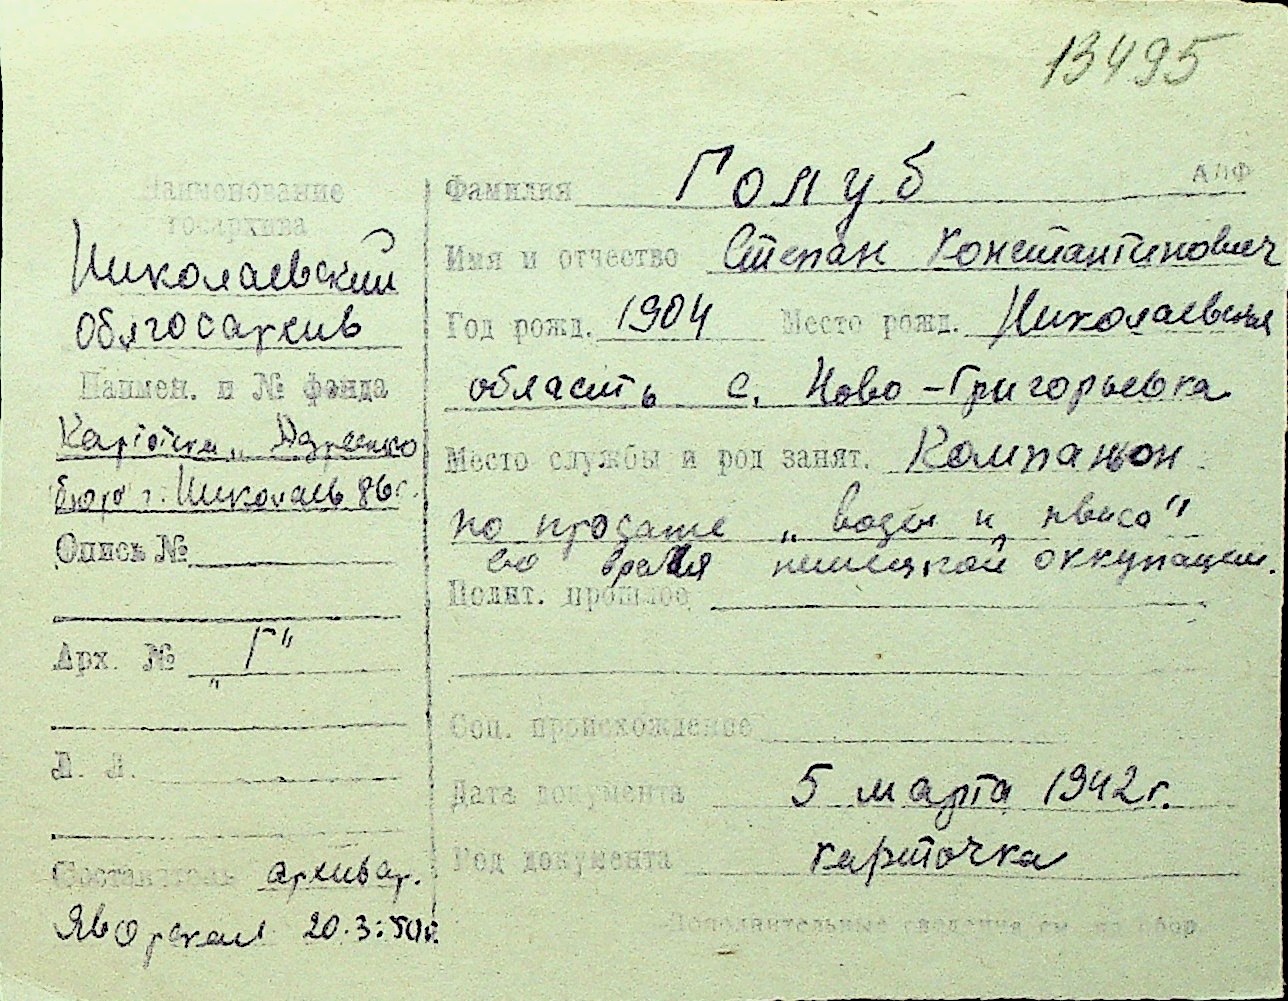 13495
Наименование
госархива
Николаевский
облгосархив
Наимен. и № фонда
Картотека „Адресного
бюро г. Николаев
Опись №
Арх. № „Г"
Л. Л.
Составитель архивар.
Яворская 20.3.50г.
Фамилия Голуб АПФ
Имя и отчество Степан Константинович
Год рожд. 1904 Место рожд. Николаевская
область с. Ново-Григорьевка
Место службы и род занят. Компаньон
по продаже „воды и кваса"
во время немецкой оккупации.
Полит. прошлое
Соц. происхождение
Дата документа 5 марта 1942г.
Род документа карточка
Дополнительные сведения см. на обор.